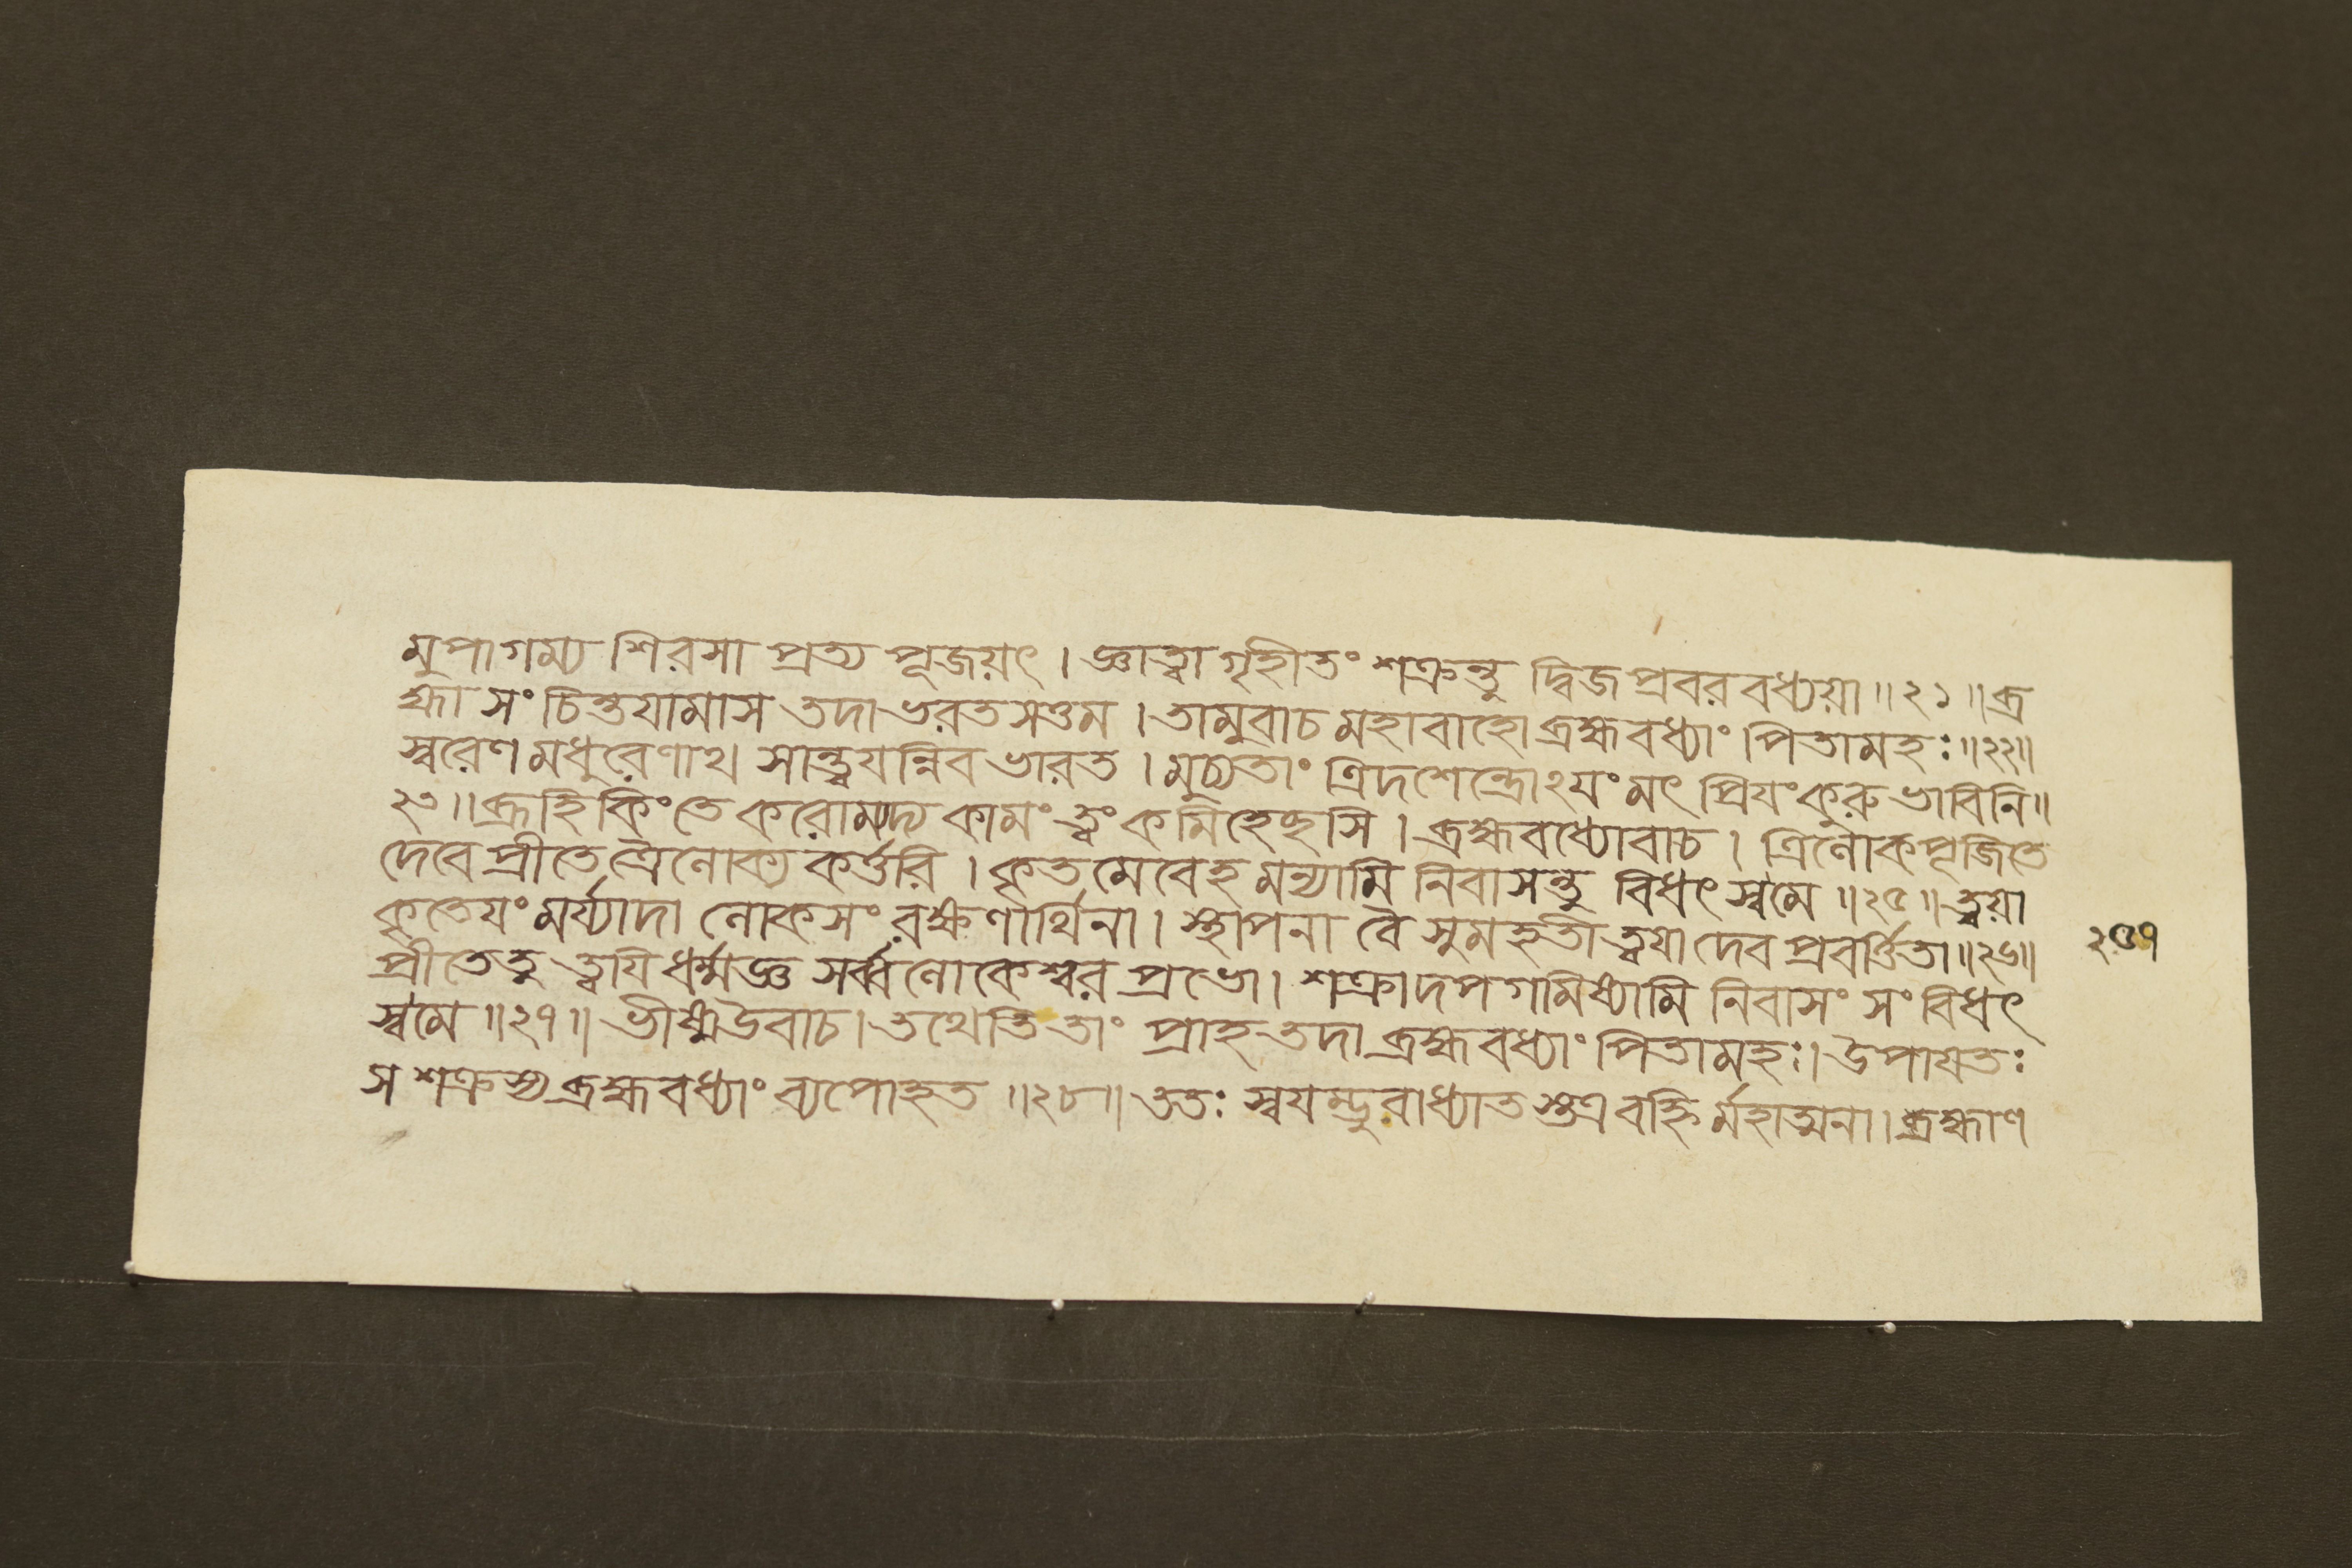 মুপাগম্য শিরসা প্রত্য পূজয়ৎ । জ্ঞাত্বা গৃহীতং শক্রন্তু দ্বিজ প্রবর বধ্যয়া ॥ ২১ ॥ ব্র
হ্মা সং চিন্তযামাস তদা ভরত সত্তম । তামুবাচ মহাবাহো ব্রহ্ম বধ্যাং পিতামহঃ ॥ ২২ ॥
স্বরেণ মধুরেণাথ সান্ত্বযন্নিব ভারত । মুচ্যতাং ত্রিদশেন্দ্রোঽযং মৎ প্রিযং কুরু ভাবিনি ॥
২৩ ॥ ব্রূহি কিং তে করোম্যদ্য কামং ত্বং কমিহেছসি । ব্রহ্মবধ্যোবাচ । ত্রিলোকপূজিতে
দেবে প্রীতে ত্রৈলোক্য কর্ত্তরি । কৃতমেবেহ মন্যামি নিবাসন্তু বিধৎস্ব মে ॥ ২৫ ॥ ত্বয়া
কৃতেযং মর্য্যাদা লোকসং রক্ষণার্থিনা । স্থাপনা বৈ সুমহতী ত্বযা দেব প্রবর্ত্তিতা ॥ ২৬ ॥
২৫৭
প্রীতে তু ত্বযি ধর্ম্মজ্ঞ সর্ব্বলোকেশ্বর প্রভো । শক্রাদপগামিষ্যামি নিবাসং সং বিধৎ
স্ব মে ॥ ২৭ ॥ ভীষ্ম উবাচ । তথেতি তাং প্রাহ তদা ব্রহ্ম বধ্যাং পিতামহঃ । উপাযতঃ
স শক্রস্য ব্রহ্ম বধ্যাং ব্যপোহত ॥ ২৮ ॥ ততঃ স্বযম্ভুবাধ্যাতস্তত্র বহ্নির্মহাত্মনা । ব্রহ্মাণ